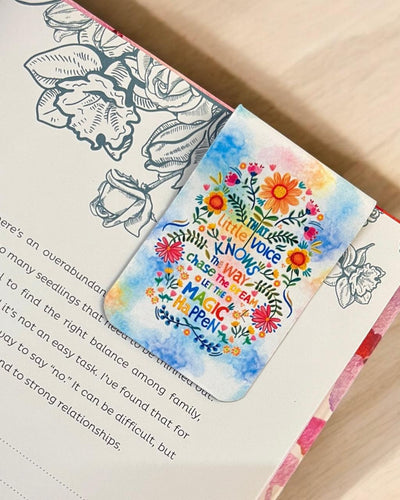 THAT
little VOICE
KNOWS
THE WAY
CHASE THE DREAM
& LET THE
MAGIC
HAPPEN
ere's an overabundan
o many seedlings that need to be thinned out,
d to find the right balance among family,
it's not an easy task. I've found that for
way to say "no." It can be difficult, but
nd to strong relationships.